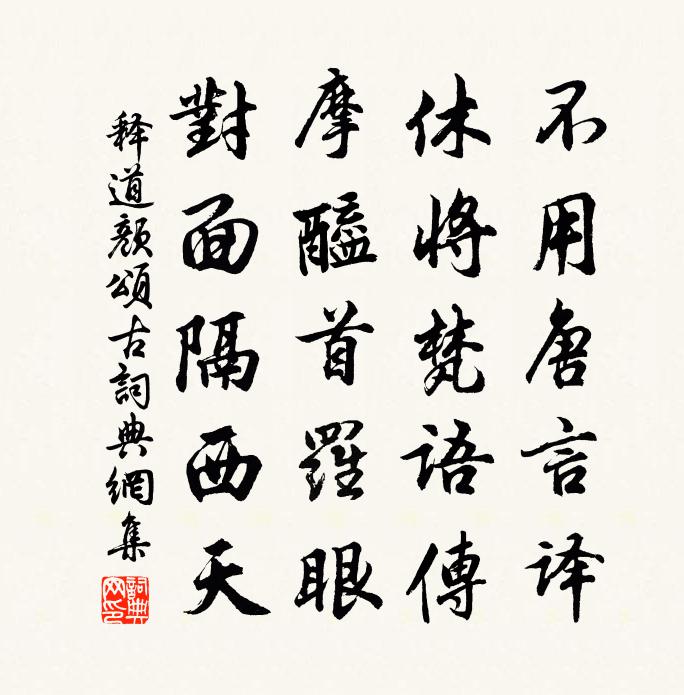 不用唐言译
休將梵語傳
摩醯首羅眼
對面隔西天
释道颜頌古詞典網集
詞典網印